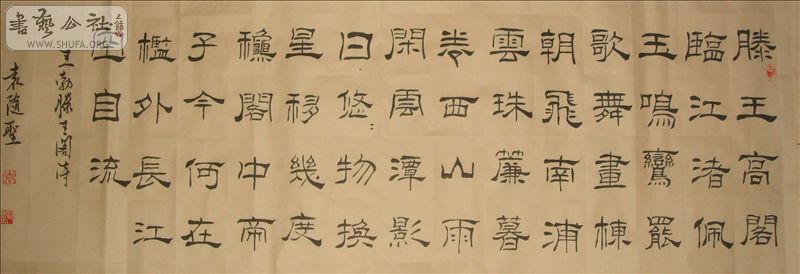 滕王高閣
臨江渚佩
玉鳴鸞罷
歌舞畫棟
朝飛南浦
雲珠簾暮
卷西山雨
閑雲潭影
日悠〻物換
星移幾度
穐閣中帝
子今何在
檻外長江
空自流
王勃滕王閣詩
袁随聖
書藝公社
WWW.SHUFA.ORG